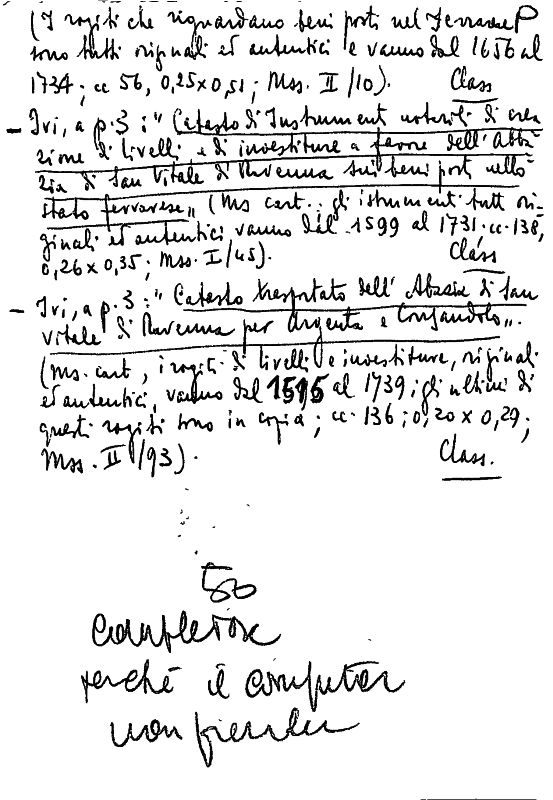 (I rogiti che riguardano beni posti nel Ferrarese
sono tutti originali ed autentici e vanno dal 1656 al
1734; cc 56, 0,25x0,51; Mss. II/10). Class
- Ivi, a p. 3: " Catasto di Instrumenti notarili di crea
zione di livelli e di investiture a favore dell'Abba
zia di San Vitale di Ravenna sui beni posti nello
stato ferrarese „ (Ms cart.. gli istrumenti tutti ori-
ginali ed autentici vanno dal 1599 al 1731. cc. 138,
0,26x0,35; Mss. I/45). Class
- Ivi, a p. 3: " Catasto trasportato dell'Abazia di San
Vitale di Ravenna per Argenta e Consandolo„.
(Ms. cart, i rogiti di livelli e investiture, originali
ed autentici, vanno dal 1595 al 1739; gli ultimi di
questi rogiti sono in copia; cc. 136; 0,20 x 0,29;
Mss. II/93). Class.
50
perché il computer
non